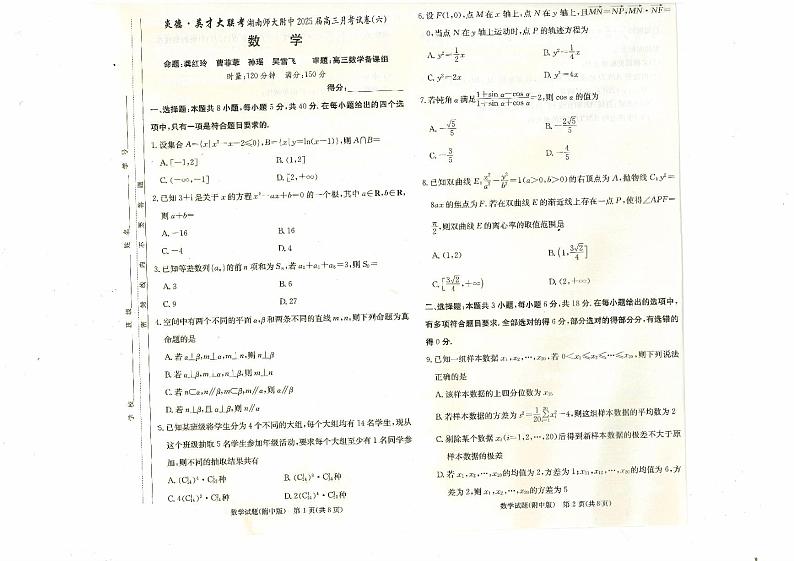 炎德·英才大联考湖南师大附中2025届高三月考试卷(六)
数 学
命题:龚红玲 曹菲菲 孙瑶 吴雪飞 审题:高三数学备课组
时量:120分钟 满分:150分
得分:
一、选择题:本题共8小题,每小题5分,共40分.在每小题给出的四个选
项中,只有一项是符合题目要求的.
1.设集合A={x|x²-x-2≤0},B={x|y=ln(x-1)},则A∩B=
A.[-1,2] B.(1,2]
C.(-∞,-1] D.[2,+∞)
2.已知3+i是关于x的方程x²-ax+b=0的一个根,其中a∈R,b∈R,
则a+b=
A.-16 B.16
C.-4 D.4
3.已知等差数列{aₙ}的前n项和为Sₙ,若
A.3 B.6
C.9 D.27
4.空间中有两个不同的平面α,β和两条不同的直线m,n,则下列命题为真
命题的是
A.若α⊥β,m⊥α,m⊥n,则n⊥β
B.若α⊥β,m⊥α,n⊥β,则m⊥n
C.若n⊂α,n∥β,m⊂β,m∥α,则α∥β
D.若n⊥β,且α⊥β,则n∥α
5.已知某班级将学生分为4个不同的大组,每个大组均有14名学生,现从
这个班级抽取5名学生参加年级活动,要求每个大组至少有1名同学参
加,则不同的抽取结果共有
数学试题(附中版) 第1页(共8页)
6.设F(1,0),点M在x轴上,点N在y轴上,且MN=NP,MN·NF=
0,当点N在y轴上运动时,点P的轨迹方程为
A.y²=1/2x B.y²=1/4x
C.y²=2x D.y²=4x
7.若钝角α满足(1+sin α-cos α)/(1+sin α+cos α)=2,则cos α的值为
A.-√5/5 B.-2√5/5
C.-3/5 D.-4/5
8.已知双曲线E:x²/a²-y²/b²=1(a>0,b>0)的右顶点为A,抛物线C:y²=
8ax的焦点为F.若在双曲线E的渐近线上存在一点P,使得∠APF=
π/2,则双曲线E的离心率的取值范围是
A.(1,2) B.(1,3√2/4]
C.[3√2/4,+∞) D.(2,+∞)
二、选择题:本题共3小题,每小题6分,共18分.在每小题给出的选项中,
有多项符合题目要求.全部选对的得6分,部分选对的得部分分,有选错的
得0分.
9.已知一组样本数据x₁,x₂,…,x₂₀,若0<x₁≤x₂≤…≤x₂₀,则下列说法
正确的是
A.该样本数据的上四分位数为x₁₅
B.若样本数据的方差为
则这组样本数据的平均数为2
C.剔除某个数据xᵢ(i=1,2,…,20)后得到新样本数据的极差不大于原
样本数据的极差
D.若x₁,x₂,…,x₁₀的均值为2,方差为1;x₁₁,x₁₂,…,x₂₀的均值为6,方
差为2,则x₁,x₂,…,x₂₀的方差为5
数学试题(附中版) 第2页(共8页)